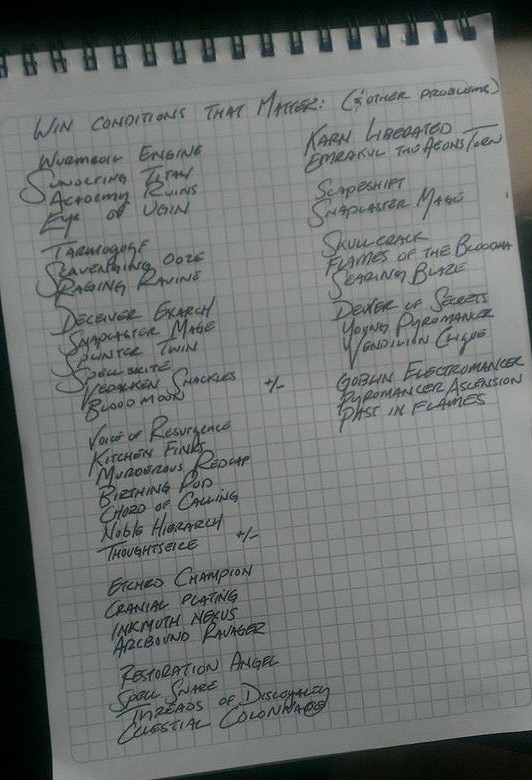 WIN CONDITIONS THAT MATTER: (& OTHER PROBLEMS)
WURMCOIL ENGINE
SUNDERING TITAN
ACADEMY RUINS
EYE OF UGIN
TARMOGOYF
SCAVENGING OOZE
RAGING RAVINE
DECEIVER EXARCH
SNAPLASTER MAGE
SPLINTER TWIN
SPELLSKITE
VEDALKEN SHACKLES +/-
BLOOD MOON
VOICE OF RESURGENCE
KITCHEN FINKS
MURDEROUS REDCAP
BIRTHING POD
CHORD OF CALLING
NOBLE HIERARCH
THOUGHTSEIZE +/-
ETCHED CHAMPION
CRANIAL PLATING
INKMOTH NEXUS
ARCBOUND RAVAGER
RESTORATION ANGEL
SPELL SNARE
THREADS OF DISLOYALTY
CELESTIAL COLONNADE
KARN LIBERATED
EMRAKUL THE AEONS TORN
SCAPESHIFT
SNAPLASTER MAGE
SKULLCRACK
FLAMES OF THE BLOODHA
SEARING BLAZE
DELVER OF SECRETS
YOUNG PYROMANCER
VENDILION CLIQUE
GOBLIN ELECTROMANCER
PYROMANCER ASCENSION
PAST IN FLAMES